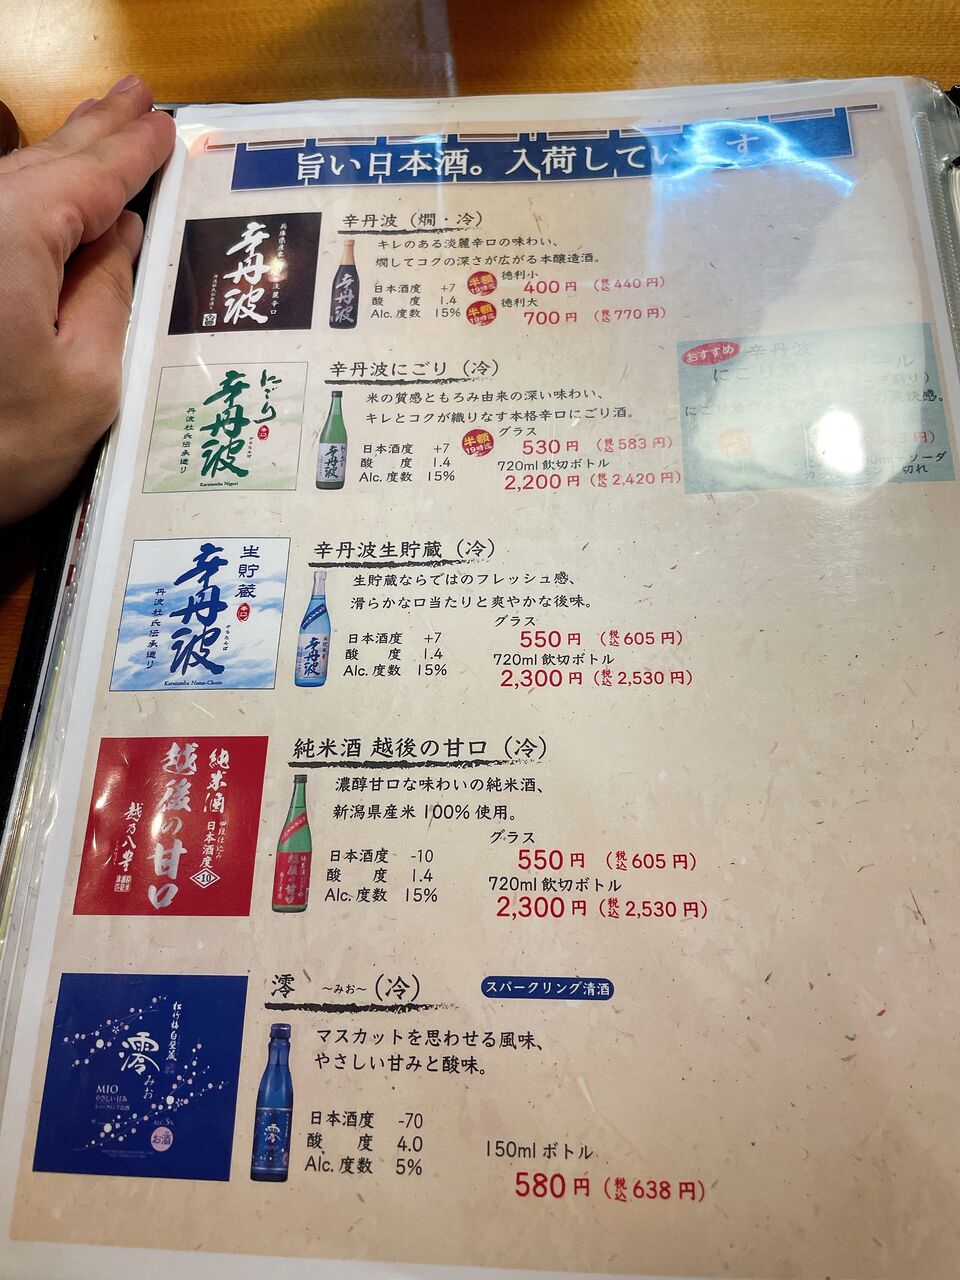 旨い日本酒。入荷してい す
兵庫県産
淡麗辛口
辛丹波
辛丹波（燗・冷）
キレのある淡麗辛口の味わい、
燗してコクの深さが広がる本醸造酒。
日本酒度 +7
酸度 1.4
Alc.度数 15%
半額 19時迄 徳利小
400円（税込440円）
半額 19時迄 徳利大
700円（税込770円）
にごり
辛口
辛丹波
からたんば
丹波杜氏伝承造り
Karatamba Nigori
辛丹波にごり（冷）
米の質感ともろみ由来の深い味わい、
キレとコクが織りなす本格辛口にごり酒。
日本酒度 +7
酸度 1.4
Alc.度数 15%
半額 19時迄 グラス
530円（税込583円）
720ml飲切ボトル
2,200円（税込2,420円）
おすすめ
辛丹波
にごり ル
割り）
にごり酒の の爽快感。
円）
ml+ソーダ
切れ
生貯蔵
辛口
辛丹波
からたんば
丹波杜氏伝承造り
Karatamba Nama-Chozo
辛丹波生貯蔵（冷）
生貯蔵ならではのフレッシュ感、
滑らかな口当たりと爽やかな後味。
日本酒度 +7
酸度 1.4
Alc.度数 15%
グラス
550円（税込605円）
720ml飲切ボトル
2,300円（税込2,530円）
純米酒
四段仕込み
日本酒度
-10
越後の甘口
越乃八豊
純米酒 越後の甘口（冷）
濃醇甘口な味わいの純米酒、
新潟県産米100%使用。
日本酒度 -10
酸度 1.4
Alc.度数 15%
グラス
550円（税込605円）
720ml飲切ボトル
2,300円（税込2,530円）
松竹梅白壁蔵
澪
みお
MIO
やさしい甘み
スパークリング清酒
ALC.5%
お酒
澪 ～みお～（冷）
スパークリング清酒
マスカットを思わせる風味、
やさしい甘みと酸味。
日本酒度 -70
酸度 4.0
Alc.度数 5%
150mlボトル
580円（税込638円）